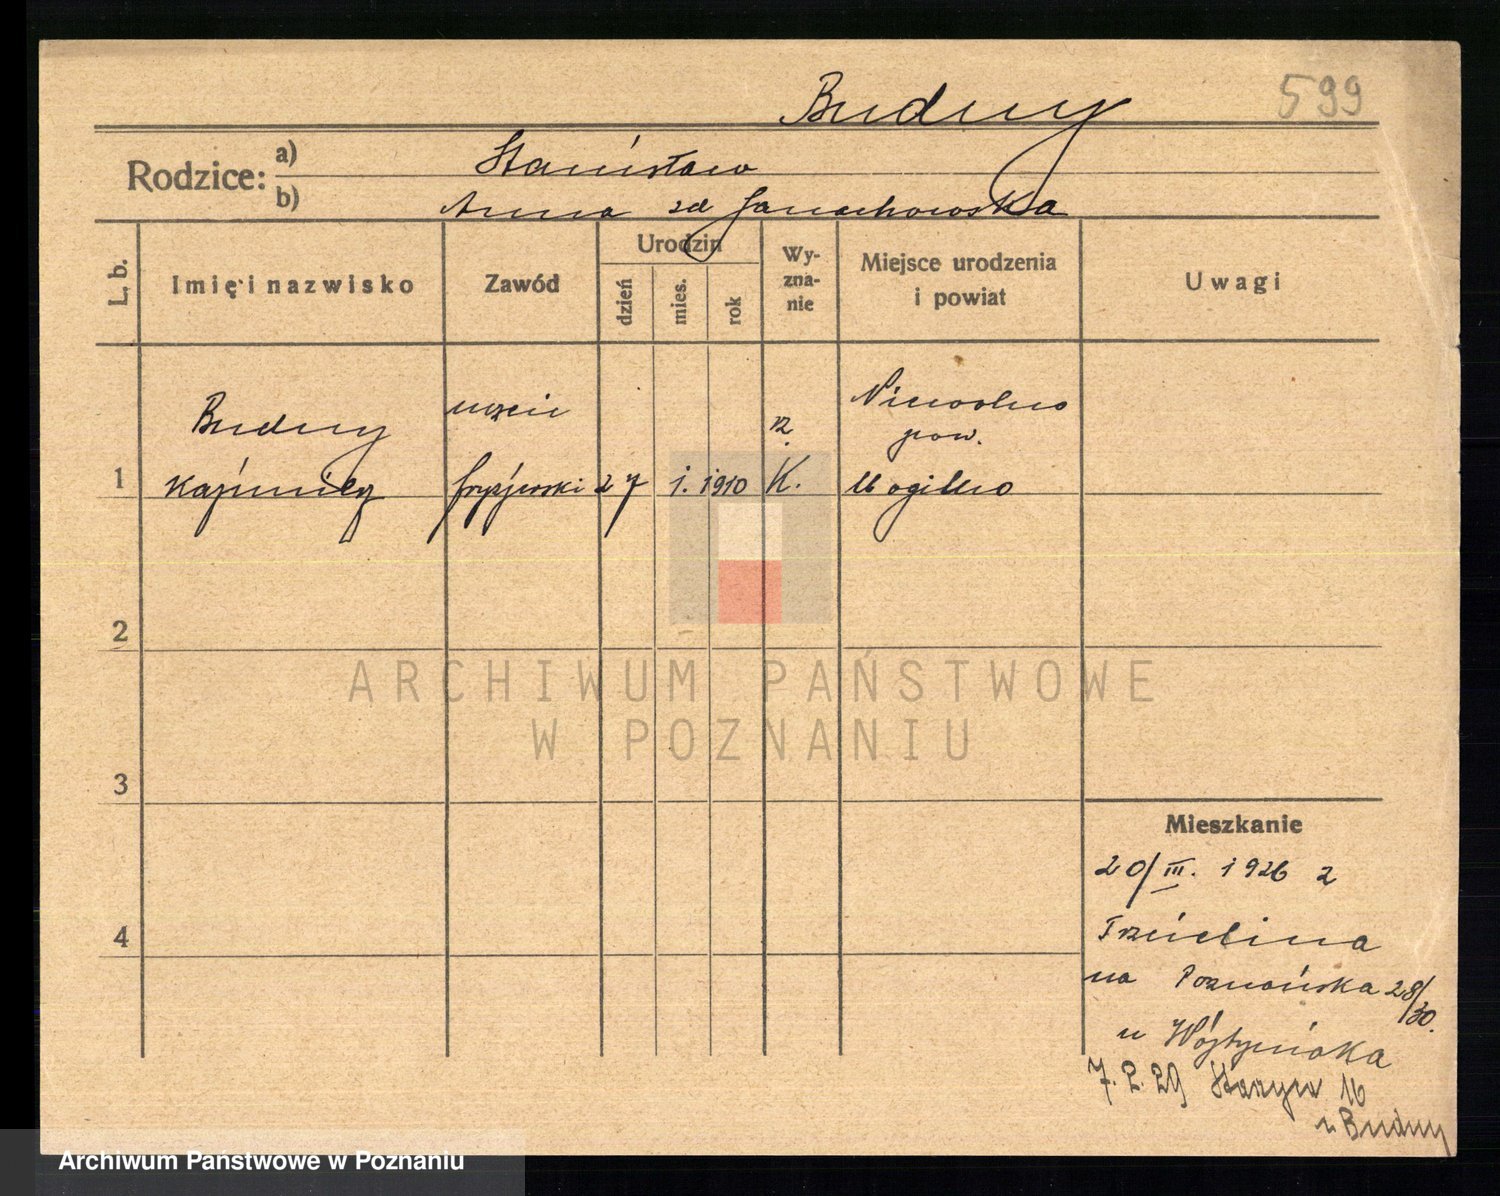 Budny
599
Rodzice:
a)
Stanisław
b)
Anna zd Janachowska
L. b.
Imię i nazwisko
Zawód
Urodzin
dzień
mies.
rok
Wy-
zna-
nie
Miejsce urodzenia
i powiat
Uwagi
Budny
uczeń
rz.
Niewolno
pow.
1
Kaźmierz
fryzjerski
27
1.
1910
K.
Mogilno
2
ARCHIWUM PAŃSTWOWE
W POZNANIU
3
Mieszkanie
20/III. 1926 z
4
na Poznańska 28/30.
u
7.2.29
16
u Budny
Archiwum Państwowe w Poznaniu